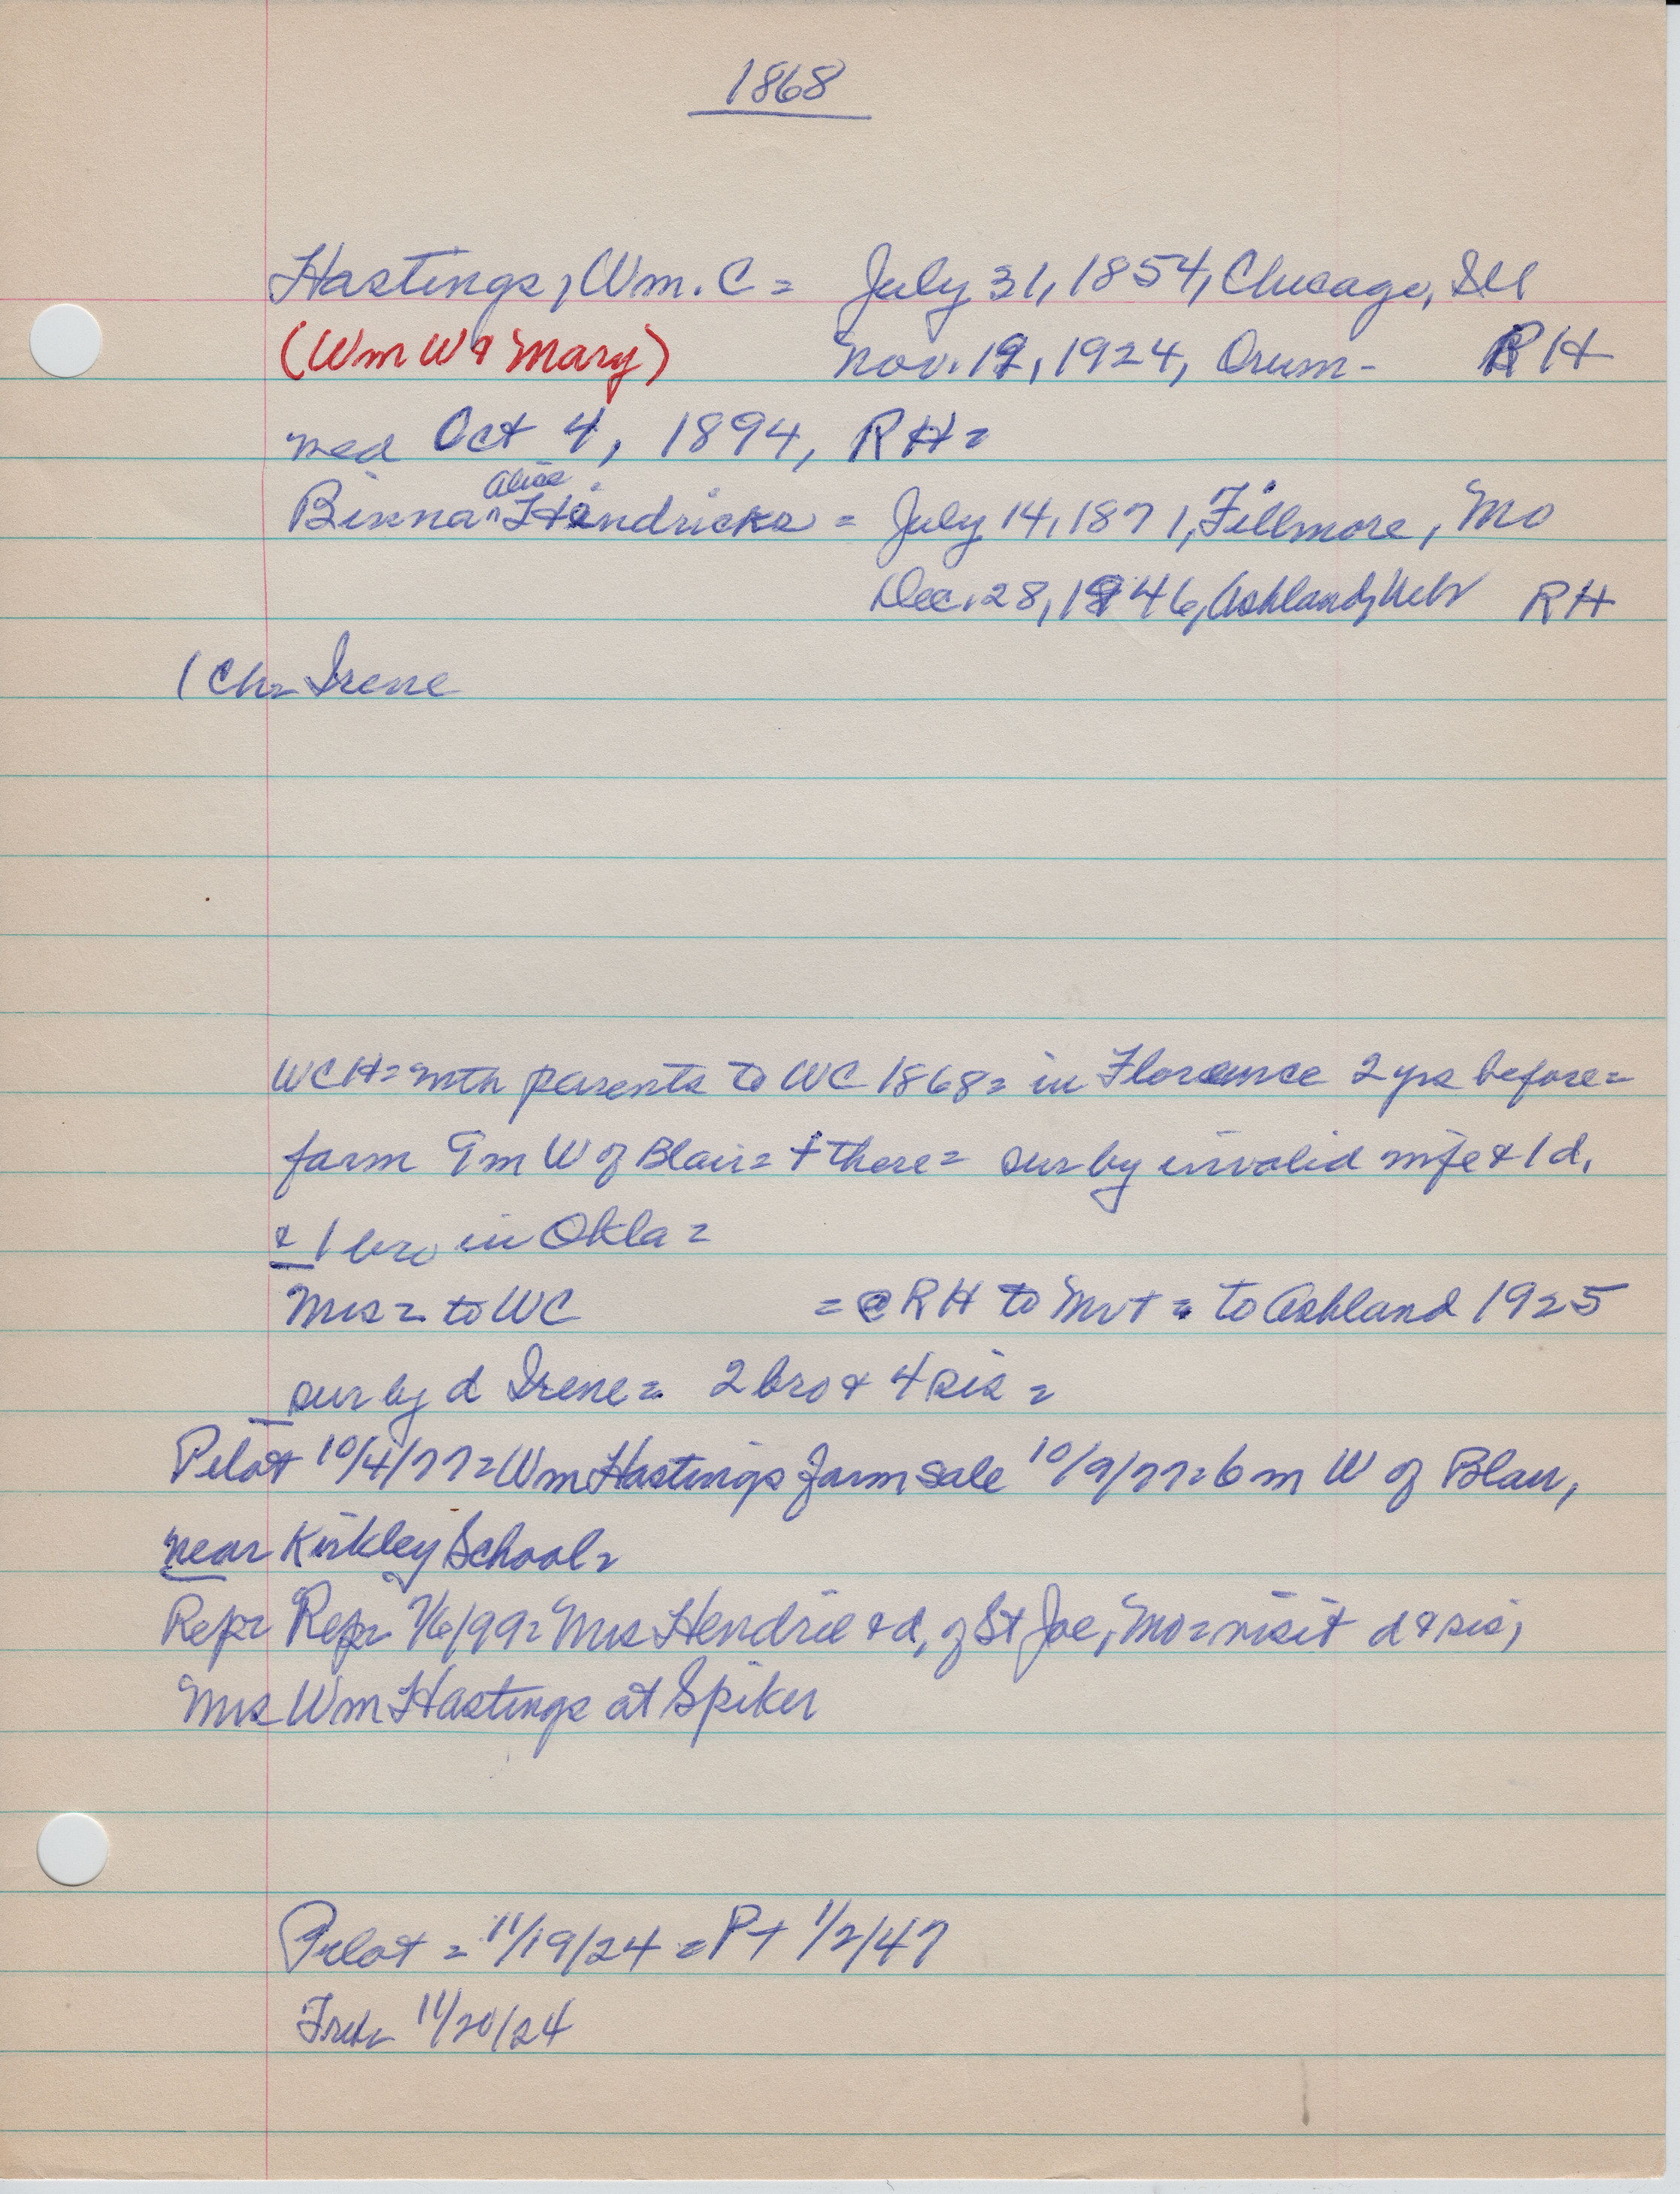 1868
Hastings, Wm. C = July 31, 1854, Chicago, Ill
(Wm W & Mary) Nov. 12, 1924, Orum - RH
med Oct 4, 1894, RH =
Alice
Binna ^ Hendricks = July 14, 1871, Fillmore, Mo
Dec. 28, 1946, Ashland, Nebr RH
1 Ch = Irene
WCH = with parents to WC 1868 = in Florence 2 yrs before =
farm 9 m W of Blair = + there = sur by invalid wife & 1 d,
& 1 bro in Okla =
Mrs = to WC = @ RH to Mvt = to Ashland 1925
sur by d Irene = 2 bro & 4 sis =
Pilot 10/4/77 = Wm Hastings farm sale 10/9/77 = 6 m W of Blair,
near Kirkley School =
Repr Repr 7/6/99 = Mrs Hendrie & d, of St Joe, Mo = visit d & sis,
Mrs Wm Hastings at Spiker
Pilot = 11/19/24 = PT 1/2/47
11/20/24